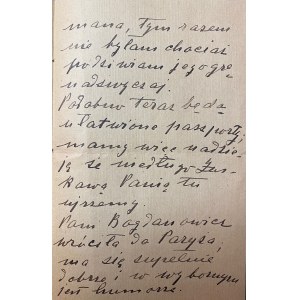 mana, tym razem
nie byłam chociaż
podziwiam jego grę
nadzwyczaj.
Podobno teraz będą
ułatwione paszporty,
mamy więc nadzie-
ję że niedługo Łas-
kawą Panią tu
ujrzemy.
Pani Bogdanowicz
wróciła do Paryża,
ma się zupełnie
dobrze i w wybornym
jest humorze.